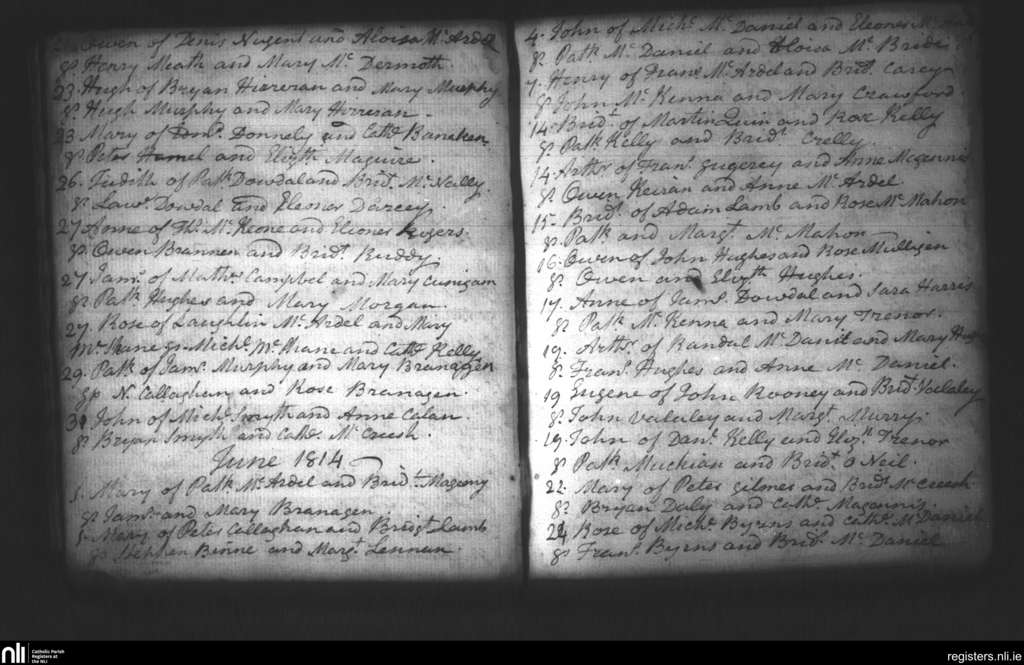 Owen of Denis Nugent and Aloisa Mc. Ardel
gs. Henry Meath and Mary Mc. Dermott.
23. Hugh of Bryan Hiereran and Mary Murphy
gs. Hugh Murphy and Mary Herreran.
23 Mary of Donnely and Cathe.
gs. Peter Hamel and Elizth. Maguire.
26. Judith of Patk. Dowdal and Brid. Mc. Neilly.
gs. Lawe. Dowdal and Eleoner Darcey.
27 Anne of Ths. Mc. Keone and Elioner Rogers.
gs. Owen Brannen and Bridt. Ruddy
27 Jams. of Mathw. Campbel and Mary Cunigam
gs. Patk. Hughes and Mary Morgan.
27. Rose of Laughlin Mc. Ardel and Mary
Mc. Shane gs. Michl. Mc. Shane and Cathe. Kelly
29. Patk. of Jams. Murphy and Mary Branaggen
gs. N. Callaghan and Rose Branagen.
31 John of Michl. Smyth and Anne Calan.
gs. Bryan Smyth and Cathe. Mc. Creesh.
June 1814
5. Mary of Patk. Mc. Ardel and Bridt. Mageony
gs. Jams. and Mary Branagen.
5. Mary of Peter Callaghan and Bridgt. Lamb
gs. Stephen Binne and Margt. Lennan.
4. John of Michl. Mc. Daniel and Eleoner
gs. Patk. Mc. Daniel and Aloisa Mc. Bride
7. Henry of Frans. Mc. Ardel and Brid. Casey
gs. John Mc. Kenna and Mary Crawford.
14. Bridt. of Martin Quin and Rose Kelly
gs. Patk. Kelly and Bridt. Crelly.
14. Arthr. of Frans. and Anne Magennis
gs. Owen Keiran and Anne Mc. Ardel.
15. Bridt. of Adam Lamb and Rose Mc. Mahon
gs. Patk. and Margt. Mc. Mahon
16. Owen of John Hughes and Rose Mulligen
gs. Owen and Elizth. Hughes.
17. Anne of Jams. Dowdal and Sara Harris
gs. Patk. Mc. Kenna and Mary Trenor.
19. Arthr. of Randal Mc. Danil and Mary
gs. Frans. Hughes and Anne Mc. Daniel.
19 Eugene of John Rooney and Brid. Valaley
gs. John Valuley and Margt. Murry.
19. John of Danl. Kelly and Elizth. Trenor
gs. Patk. Muckian and Bridt. o Neil.
22. Mary of Peter Gilmer and Bridt. Mc. Creesh
gs. Bryan Daly and Cathe. Magennis
24. Rose of Michl. Byrns and Cathe. Mc. Daniel
gs. Frans. Byrns and Bridt. Mc. Daniel
nli Catholic Parish
Registers at
the NLI
registers.nli.ie